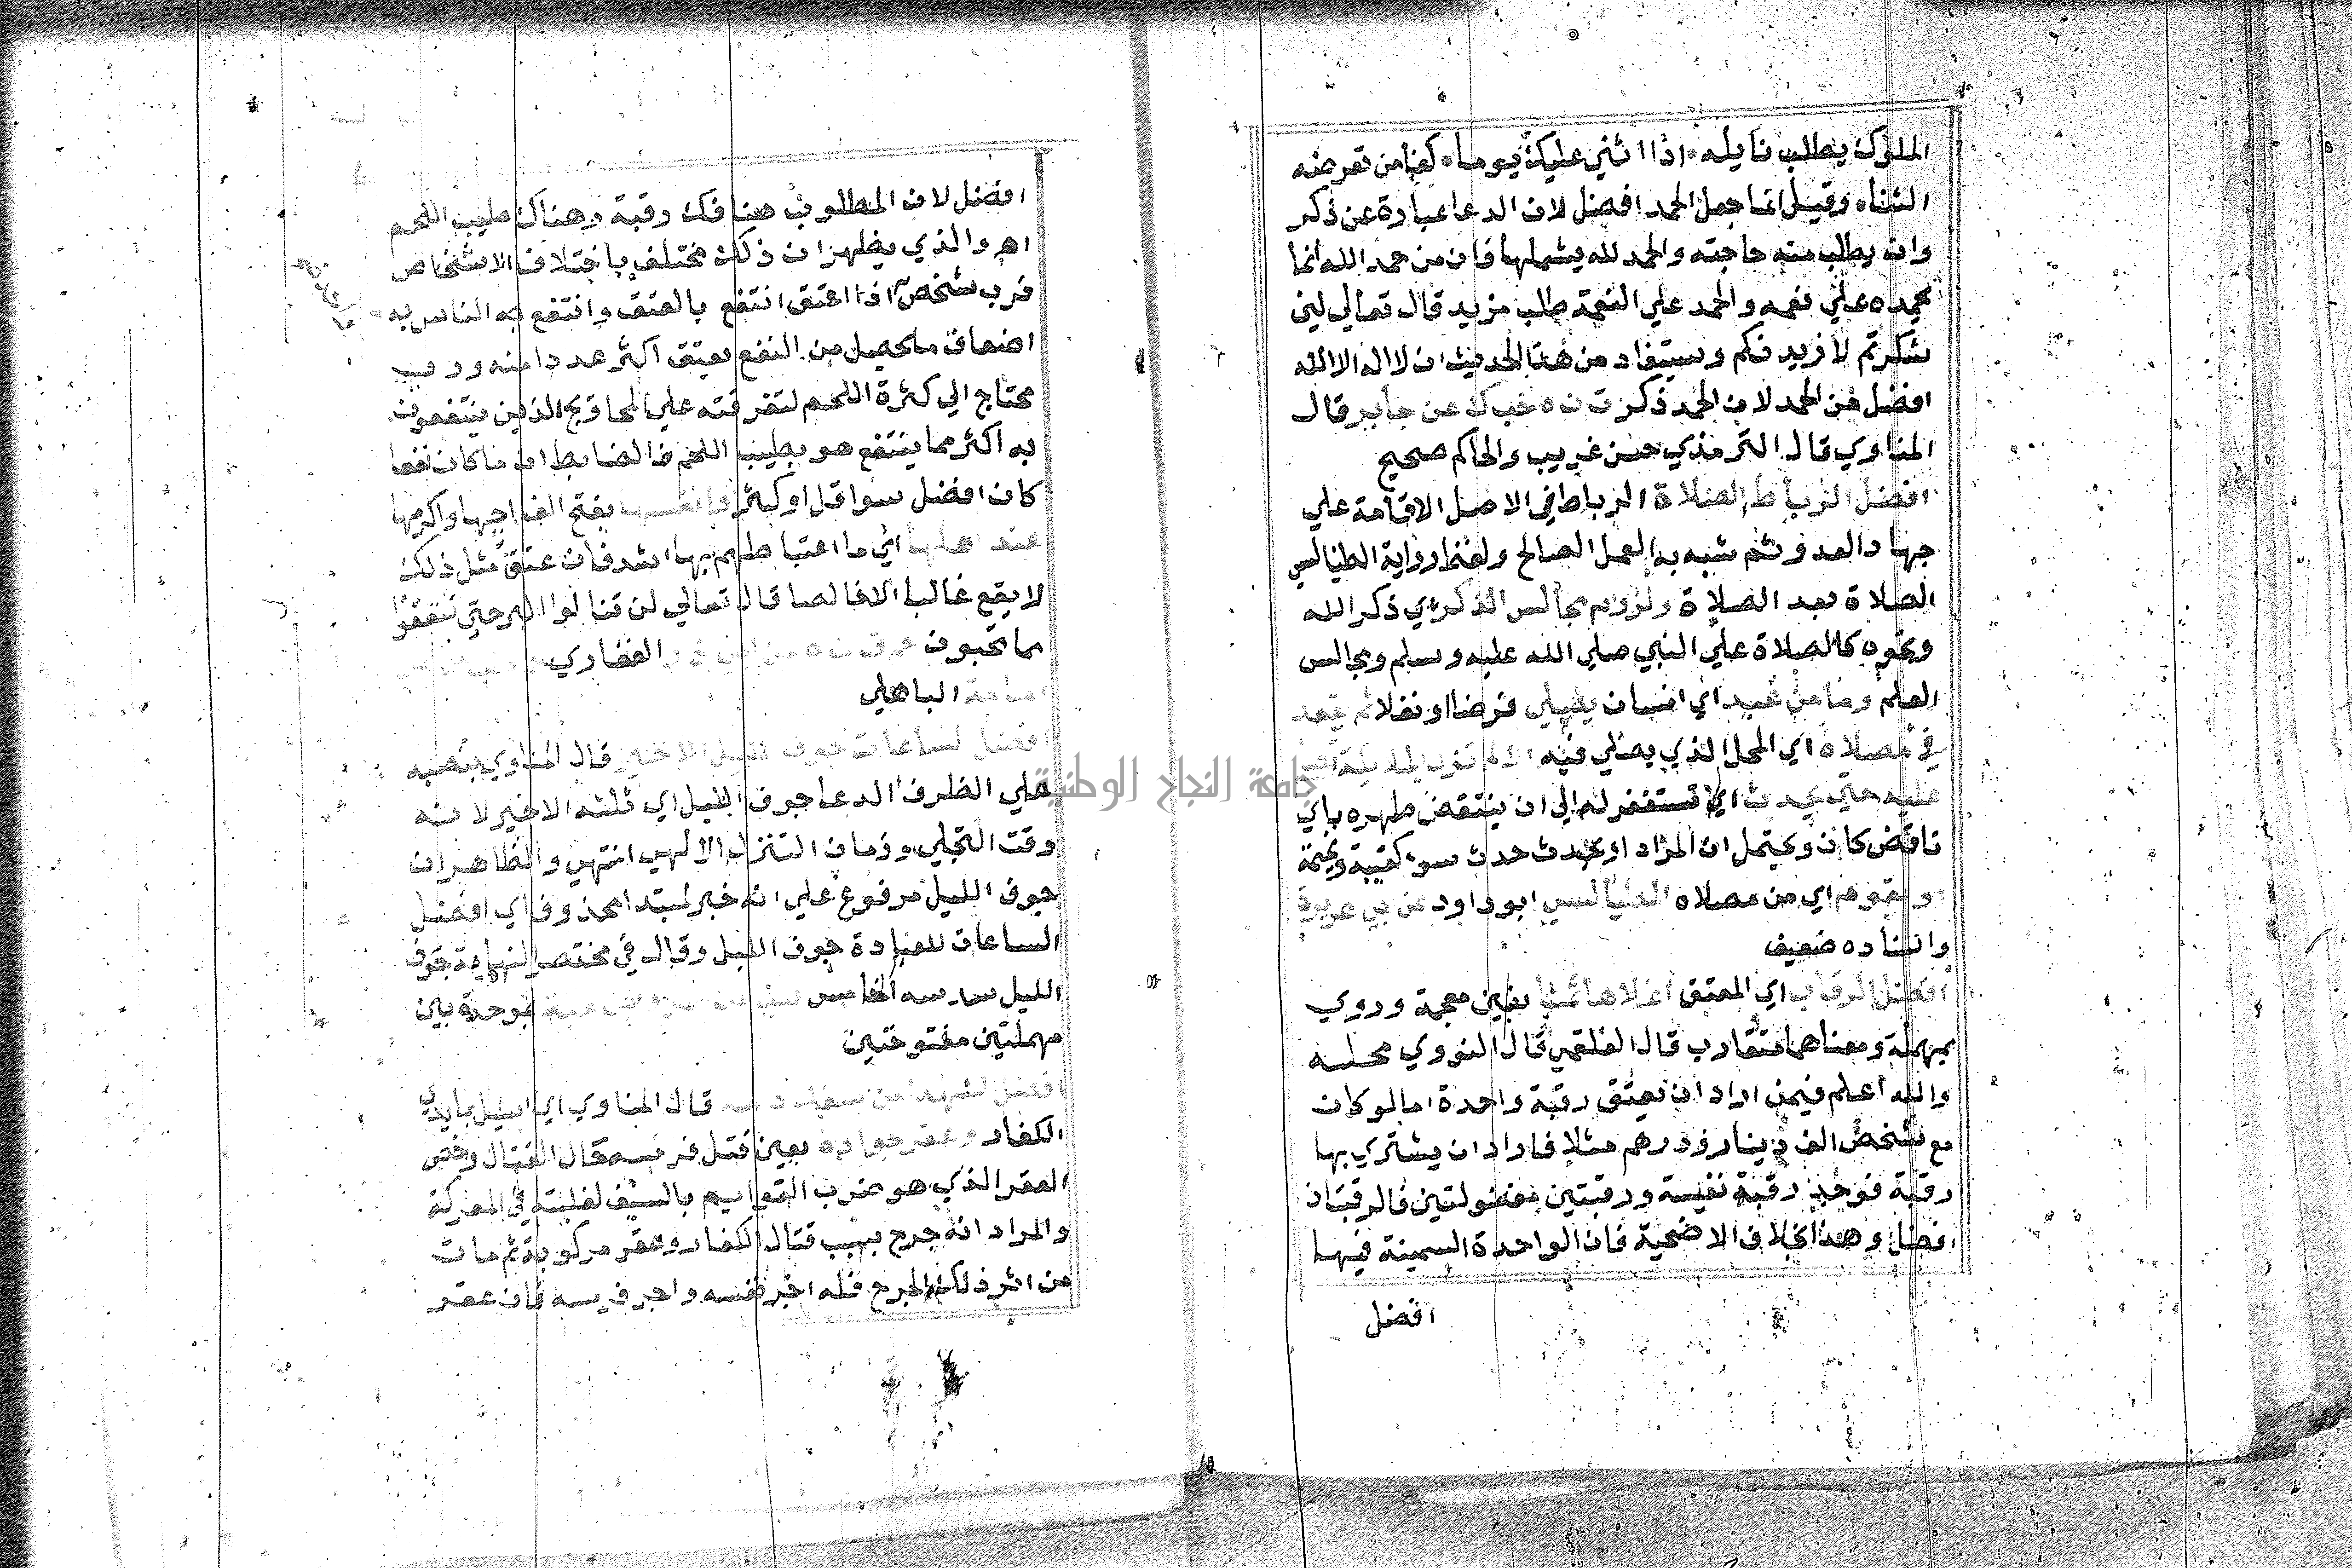 الملوك يطلب نايله اذا اثني عليك يوما كفا من تعرضه
الثناء وقيل انما جعل الحمد افضل لان الدعا عبارة عن ذكر
وان يطلب منه حاجته والحمد لله يشملها فان من حمد الله انما
يحمده علي نعمه والحمد علي النعمة طلب مزيد قال تعالي لين
شكرتم لازيدنكم ويستفاد من هذا الحديث ان لا اله الا الله
افضل من الحمد لان الحمد ذكر ت ن ه حب ك عن جابر قال
المناوي قال الترمذي حسن غريب والحاكم صحيح
افضل الرباط الصلاة الرباط في الاصل الاقامة علي
جهاد العدو ثم شبه به العمل الصالح ولفظ رواية الطيالس
الصلاة بعد الصلاة ولزوم مجالس الذكر اي ذكر الله
ونحوه كالصلاة علي النبي صلي الله عليه وسلم ومجالس
العلم وما من عبد اي انسان يصلي فرضا او نفلا ثم يقعد
في مصلاه اي المحل الذي يصلي فيه الا لم تزل الملايكة تصلي
عليه حتي يحدث اي تستغفر له الي ان ينتقض طهره باي
ناقض كان ويحتمل ان المراد او يحدث حدث سوء كغيبة ونميمة
او يقوم اي من مصلاه الطيالسي ابو داود عن ابي هريرة
واسناده ضعيف
افضل الرقاب اي المعتق اغلاها ثمنا بغين معجمة وروي
بمهملة ومعناهما متقارب قال العلقمي قال النووي محله
والله اعلم فيمن اراد ان يعتق رقبة واحدة اما لو كان
مع شخص الف درهم مثلا فاراد ان يشتري بها
رقبة فوجد رقبة نفيسة ورقبتين مفضولتين فالرقبتان
افضل وهذا بخلاف الاضحية فان الواحدة السمينة فيها
افضل
افضل لان المطلوب هنا فك رقبة وهناك طيب اللحم
اه والذي يظهر ان ذلك مختلف باختلاف الاشخاص
فرب شخص اذا اعتق انتفع بالعتق وانتفع به الناس
اضعاف ما يحصل من النفع بعتق اكثر عددا منه ورب
محتاج الي كثرة اللحم لتفرقته علي المحاويج الذين ينتفعون
به اكثر مما ينتفع هو بطيب اللحم فالضابط ان ما كان نفعا
كان افضل سوا قل او كثر وانفسها بفتح الفا احبها واكرمها
عند اهلها اي ما اغتباطهم بها اشد فان عتق مثل ذلك
لا يقع غالبا الا خالصا قال تعالي لن تنالوا البر حتي تنفقوا
مما تحبون حم ق ن ه عن ابي ذر الغفاري
امامة الباهلي
افضل الساعات جوف الليل الاخير قال المناوي بنصبه
علي الظرف الدعا جوف الليل اي ثلثه الاخير لانه
وقت التجلي وزمان التنزل الالهي انتهي والظاهر ان
جوف الليل مرفوع علي انه خبر لمبتدا محذوف اي افضل
الساعات للعبادة جوف الليل وقال في مختصر النهاية جوف
الليل سدسه الخامس بموحدة بين
مهملتين مفتوحتين
افضل الشهدا من سفك دمه قال المناوي اي اسيل بايدي
الكفار وعقر جواده يعين قتل فرسه حال القتال وخص
العقر الذي هو ضرب القوايم بالسيف لغلبته في المعركة
والمراد انه جرح بسبب قتال الكفار وعقر مركوبه ثم مات
من اثر ذلك الجرح فله اجر نفسه واجر فرسه فان عقر
جامعة النجاح الوطنية